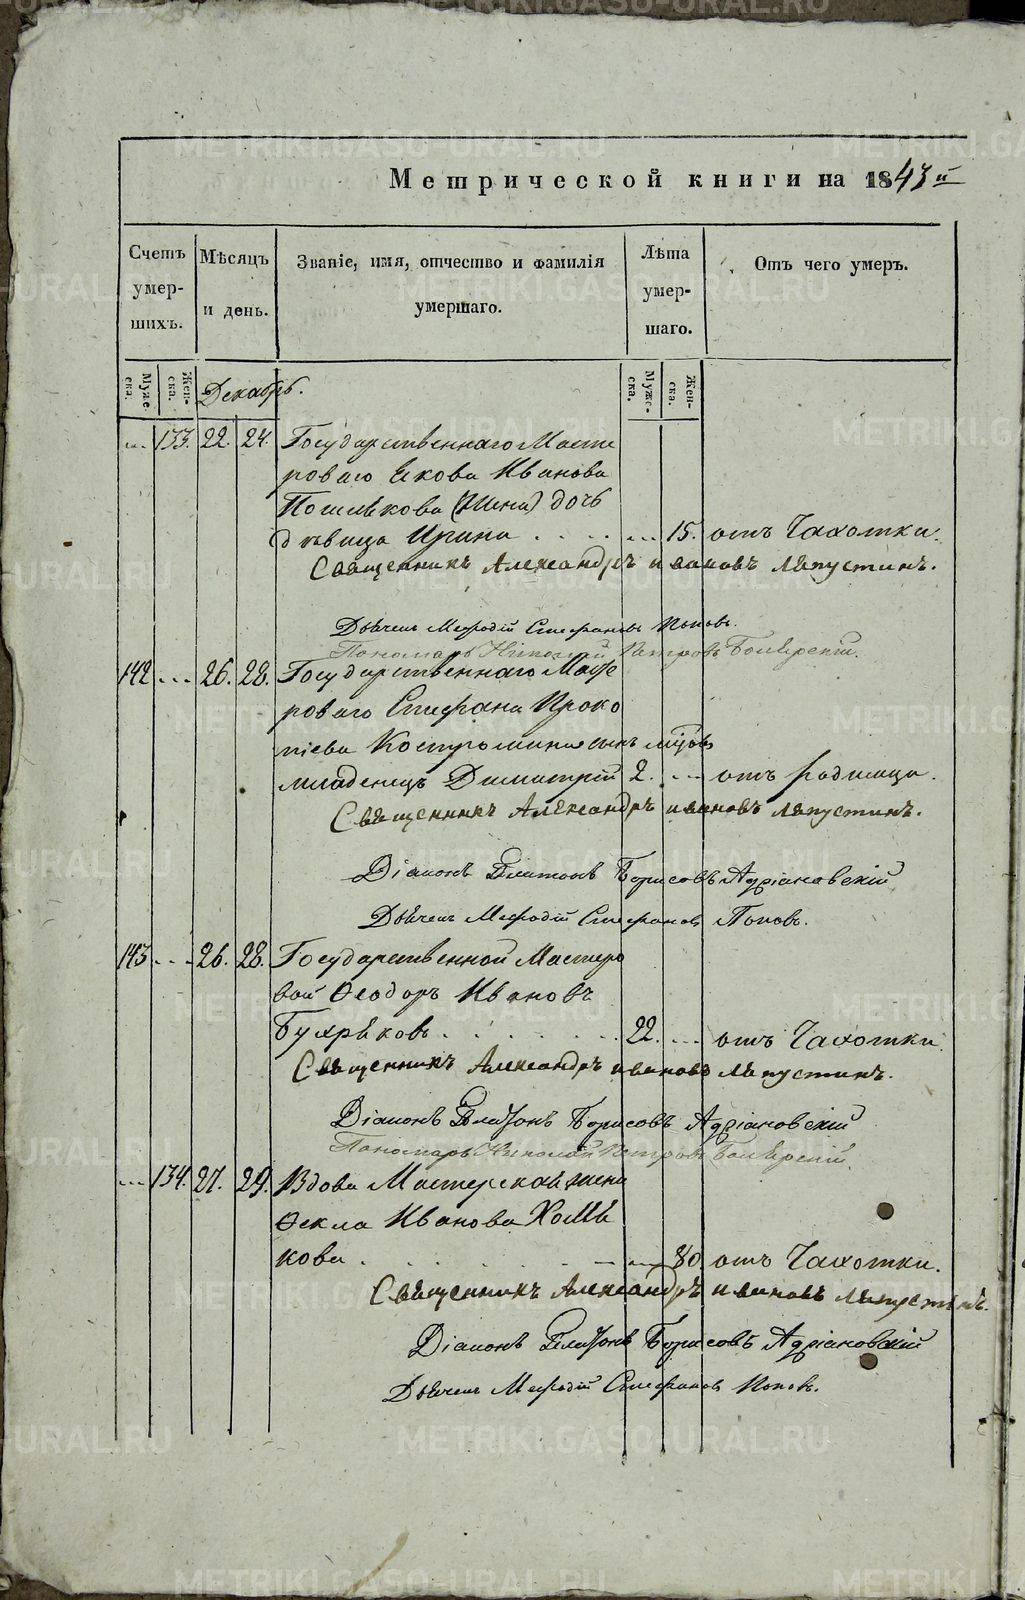 Метрической книги на 1843й
Счетъ умер-шихъ.
Мѣсяцъ и день.
Званіе, имя, отчество и фамилія умершаго.
Лѣта умер-шаго.
Отъ чего умеръ.
Муже ска.
Жен-ска.
Декабрь.
Муже-ска.
Жен-ска.
133. 22. 24. Государственнаго Масте
роваго Иванова
дочь
дѣвица Ирина 15. отъ Чахотки.
Священникъ Александръ Ивановъ Ляпустинъ.
Дьячекъ Мефодій Стефановъ Поповъ.
Пономарь Николай Петровъ
142 26. 28. Государственнаго Масте
роваго Стефана Проко
піева Костромина сынъ
младенецъ Димитрій 2. отъ родимца.
Священникъ Александръ Ивановъ Ляпустинъ.
Діаконъ Платонъ Борисовъ Адріановскій
Дьячекъ Мефодій Стефановъ Поповъ.
143 26. 28. Государственной Мастеро
вой Ѳеодоръ Ивановъ
22. отъ Чахотки
Священникъ Александръ Ивановъ Ляпустинъ.
Діаконъ Платонъ Борисовъ Адріановскій
Пономарь Николай Петровъ
134. 27. 29. Вдова Мастерская жена
Ѳекла Иванова Хомя
кова 80. отъ Чахотки.
Священникъ Александръ Ивановъ Ляпустинъ.
Діаконъ Платонъ Борисовъ Адріановскій
Дьячекъ Мефодій Стефановъ Поповъ.
METRIKI.GASO-URAL.RU